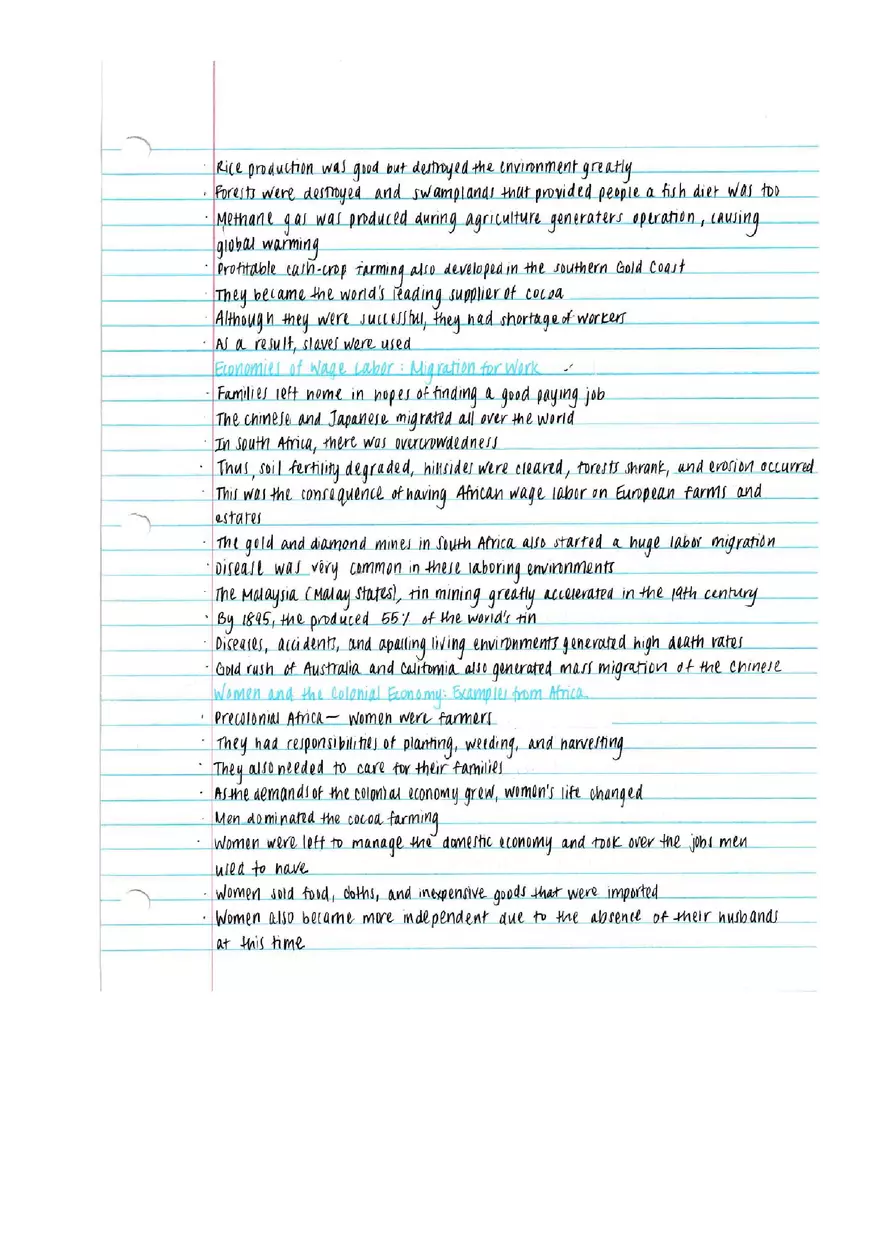 · Rice production was good but destroyed the environment greatly
· Forests were destroyed and swamplands that provided people a fish diet was too
· Methane gas was produced during agriculture generaters operation, causing
global warming
· Profitable cash-crop farming also developed in the southern Gold Coast
· They became the world's leading supplier of cocoa
· Although they were successful, they had shortage of workers
· As a result, slaves were used
Economies of Wage Labor: Migration for Work
· Families left home in hopes of finding a good paying job
· The chinese and Japanese migrated all over the world
· In South Africa, there was overcrowdedness
· Thus, soil fertility degraded, hillsides were cleared, forests shrank, and erosion occurred
· This was the consequence of having African wage labor on European farms and
estates
· The gold and diamond mines in South Africa also started a huge labor migration
· Disease was very common in these laboring environments
· The Malaysia (Malay States), tin mining greatly accelerated in the 19th century
· By 1895, the produced 55% of the world's tin
· Diseases, accidents, and apalling living environments generated high death rates
· Gold rush of Australia and California also generated mass migration of the chinese
Women and the Colonial Economy: Examples from Africa
· Precolonial Africa— women were farmers
· They had responsibilities of planting, weeding, and harvesting
· They also needed to care for their families
· As the demands of the colonial economy grew, women's life changed
· Men dominated the cocoa farming
· Women were left to manage the domestic economy and took over the jobs men
used to have
· Women sold food, cloths, and inexpensive goods that were imported
· Women also became more independent due to the absence of their husbands
at this time